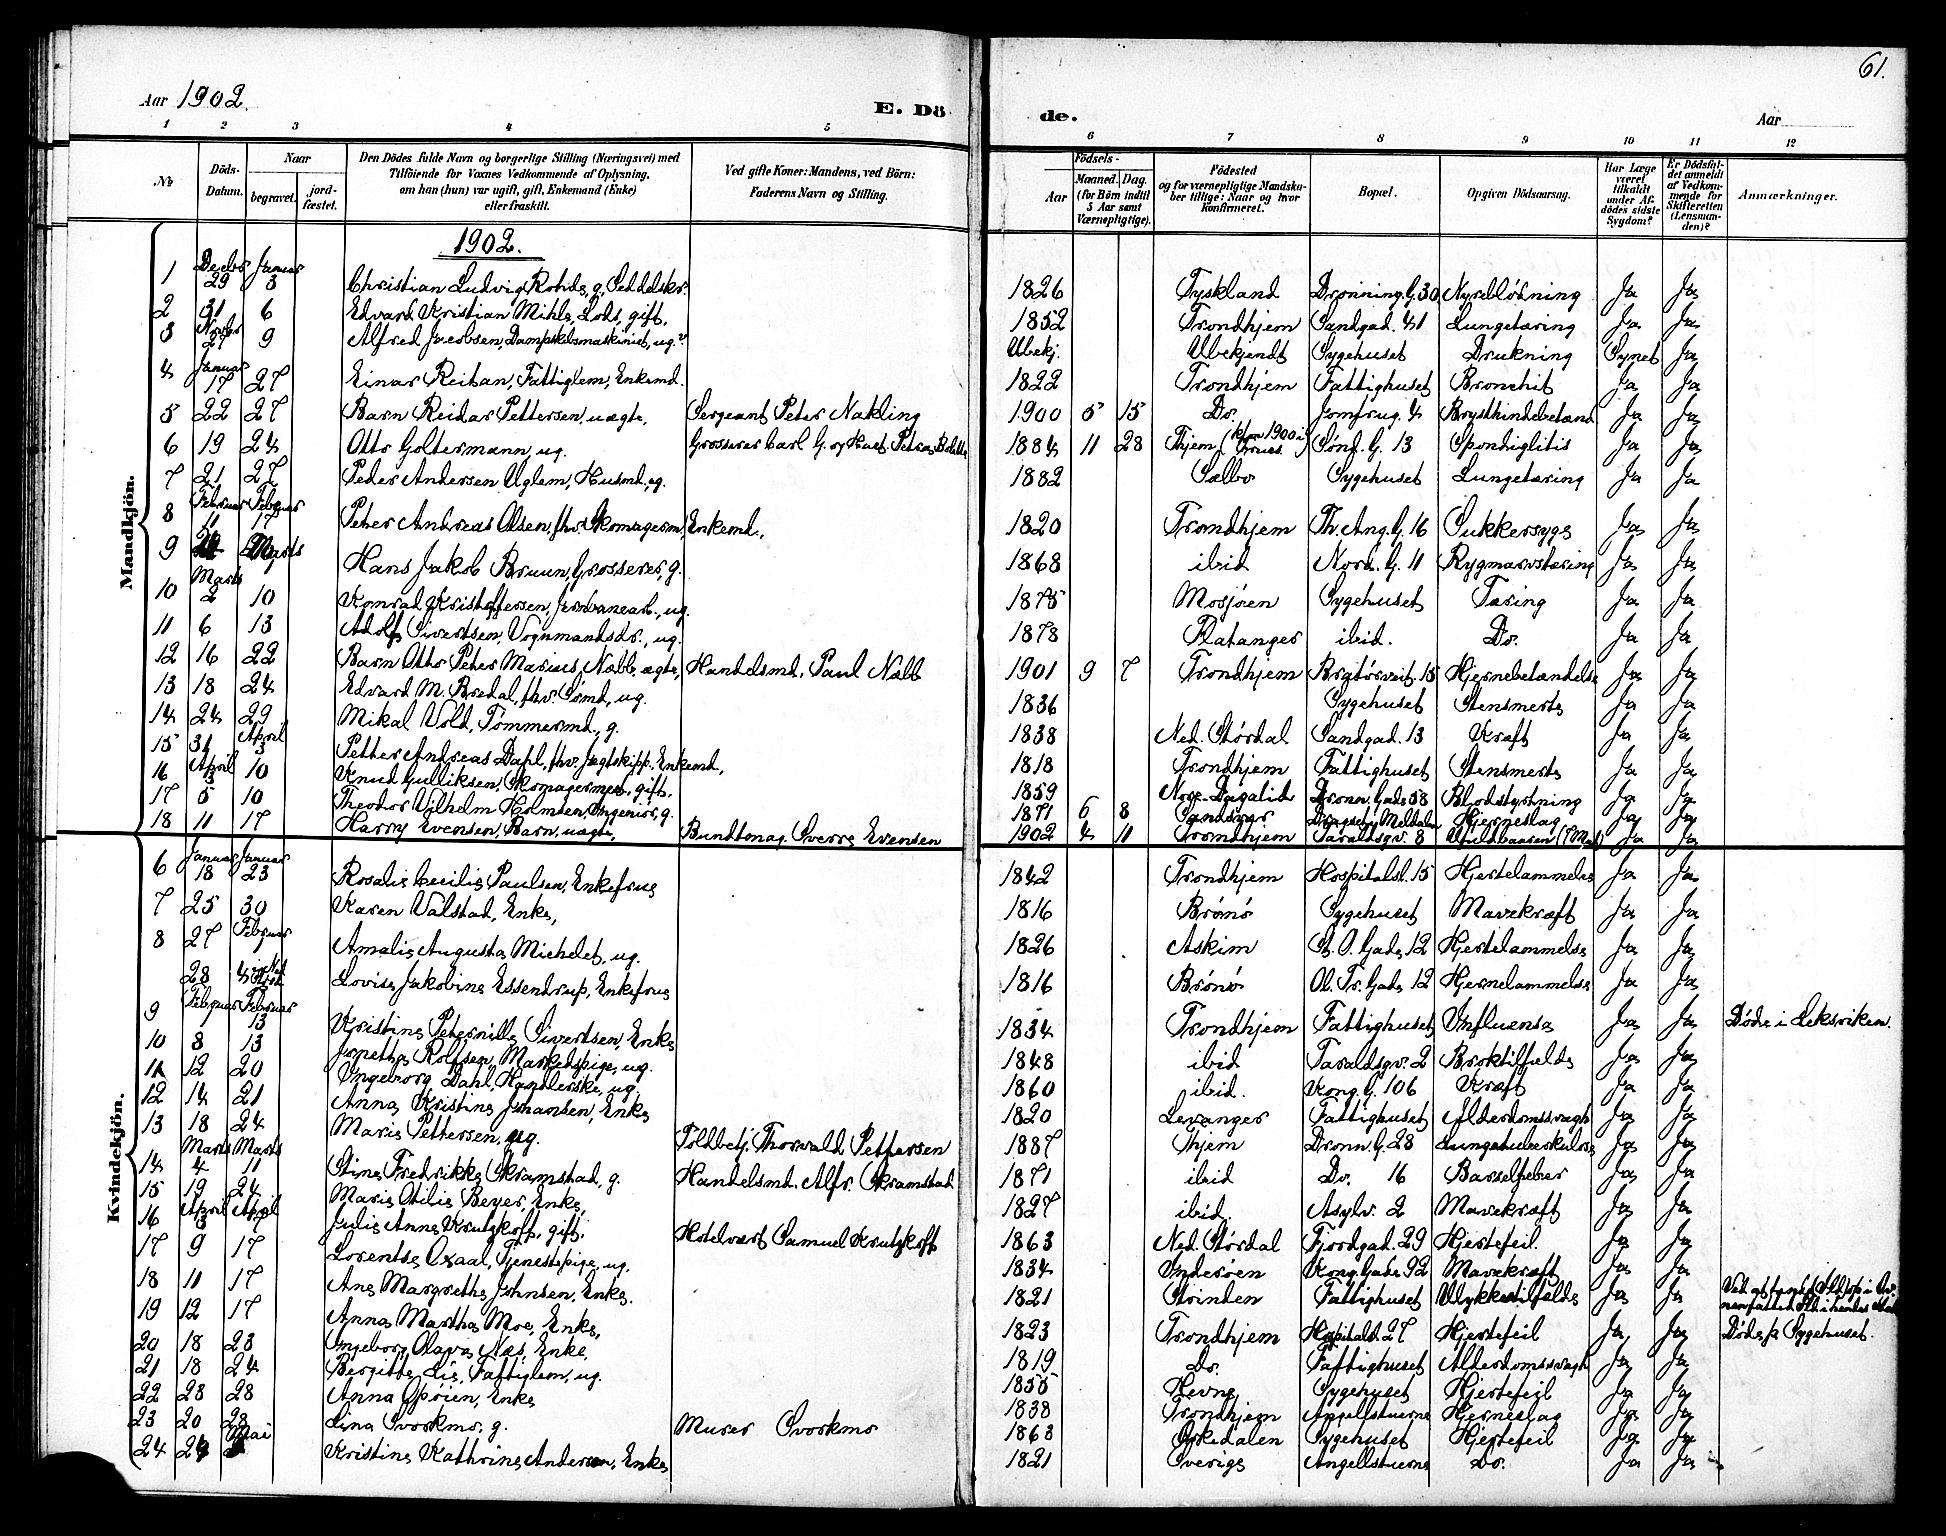 61.
Aar 1902.
E. Dö
de.
Aar
1 2 3 4 5 6 7 8 9 10 11 12
No
Döds-Datum.
Naar
begravet.
jord-fæstet.
Den Dödes fulde Navn og borgerlige Stilling (Næringsvei) med
Tilföiende for Voxnes Vedkommende af Oplysning,
om han (hun) var ugift, gift, Enkemand (Enke)
eller fraskilt.
Ved gifte Koner: Mandens, ved Börn:
Faderens Navn og Stilling.
Födsels-
Aar
Maaned. Dag.
(for Börn indtil
5 Aar samt
Værnepligtige).
Födested
og for værnepligtige Mandska-
ber tillige: Naar og hvor
konfirmeret.
Bopæl.
Opgiven Dödsaarsag.
Har Læge
været
tilkaldt
under Af-
dödes sidste
Sygdom?
Er Dödsfal-
det anmeldt
af Vedkom-
mende for
Skifteretten
(Lensman-
den)?
Anmærkninger.
Mandkjön.
1902.
Decbr Januar
1 29 3 Christian Ludvig Rohde, g, Seddelskr. 1826 Tyskland Dronning. G. 30 Nyreblödning Ja Ja
2 31 6 Edvard Kristian Mihle, Lods, gift. 1852 Trondhjem Sandgad. 41 Lungetæring Ja Ja
Novbr
3 27 9 Alfred Jacobsen, Dampskibsmaskinist, ug.? Ubekj. Ubekjendt Sygehuset Drukning Synet Ja
Januar
4 17 27 Einar Reitan, Fattiglem, Enkemd. 1822 Trondhjem Fattighuset Bronchit Ja Ja
5 22 27 Barn Reidar Pettersen, uægte, Sergeant Peter Nakling 1900 5 15 Do. Jomfrug. 4 Brysthindebetænd Ja Ja
6 19 24 Otto Goltermann, ug. Grosserer Carl G. og Hust. Petra 1884 11 28 Thjem (kfm 1900 i) Sönd. G. 13 Spondiglitis Ja Ja
7 21 27 Peder Andersen Uglem, Husmd, ug. 1882 Sælbo Sygehuset Lungetæring Ja Ja
Februar Februar
8 11 17 Peter Andreas Olsen, fhv. Skomagerm, Enkemd, 1820 Trondhjem Th. Ang. G. 16 Sukkersyge Ja Ja
9 Marts Hans Jakob Bruun, Grosserer, g. 1868 ibid Nord. G. 11 Rygmarvstæring Ja Ja
Marts
10 2 10 Konrad Kristoffersen, Jernbanearb., ug. 1875 Mosjöen Sygehuset Tæring Ja Ja
11 6 13 Adolf Sivertsen, Vognmandsdr., ug. 1878 Flatanger ibid. Do. Ja Ja
12 16 22 Barn Otto Peter Marius Næbb, ægte, Handelsmd. Paul Næbb 1901 9 7 Trondhjem Bratörveit. 15 Hjernebetændelse Ja Ja
13 18 24 Edvard M. Bredal, fhv. Sömd, ug. 1836 Sygehuset Stensmerte Ja Ja
14 24 29 Mikal Vold, Tömmermd, g. 1838 Ned. Stördal Sandgad. 13 Kræft Ja Ja
April
15 31 3 Petter Andreas Dahl, fhv. Jægtskipp. Enkemd, 1818 Trondhjem Fattighuset Stensmerte Ja Ja
April
16 3 10 Knud Gulliksen, Skomagermest., gift. 1859 Dronn. Gade 58 Blodstyrtning Ja Ja
17 5 10 Theodor Vilhelm Holmsen, Ingeniör, g. 1871 6 8 Meldalen Hjerneslag Ja Ja
18 11 17 Harry Evensen, Barn, uægte, Bundtmag. Sverre Evensen 1902 4 11 Trondhjem Taraldsgv. 8 Ufuldbaaren Ja Ja
Kvindekjön.
Januar Januar
6 18 23 Rosalie Cecilie Paulsen, Enkefrue 1842 Trondhjem Hospitalsl. 15 Hjertelammelse Ja Ja
7 25 30 Karen Valstad, Enke, 1816 Brönö Sygehuset Mavekræft Ja Ja
Februar
8 27 Amalie Augusta Michelet, ug. 1826 Askim St. O. Gade 12 Hjertelammelse Ja Ja
28 4 Lovise Jakobine Essendrup, Enkefrue 1816 Brönö Ol. Tr. Gade 12 Hjernelammelse Ja Ja
Februar Februar
9 1 13 Kristine Peternille Sivertsen, Enke 1834 Trondhjem Fattighuset Influensa Ja Ja Döde i Leksviken.
10 8 13 Jonetha Rolfsen, Markedspige, ug. 1848 ibid Taraldsgv. 2 Broktilfælde Ja Ja
11 12 20 Ingeborg Dahl, Handlerske, ug. 1860 ibid. Kong. G. 106 Kræft Ja Ja
12 14 21 Anna Kristine Johansen, Enke 1820 Levanger Fattighuset Alderdomssvagh Ja Ja
13 18 24 Marie Pettersen, ug. Toldbetj. Thorvald Pettersen 1887 Thjem Dronn. G. 28 Lungetuberkulose Ja Ja
Marts Marts
14 4 11 Stine Fredrikke Skramstad, g. Handelsmd. Alfr. Skramstad 1871 ibid Do. 16 Barselfeber Ja Ja
15 19 24 Marie Otilie Beyer, Enke, 1827 ibid. Asylv. 2 Mavekræft Ja Ja
April April
16 3 7 Julie Anne Krutzkoft, gift. Hotelvært Samuel Krutzkoft 1863 Ned. Stördal Fjordgad. 29 Hjertefeil. Ja Ja
17 9 17 Lorentse Oxaal, Tjenestepige, ug. 1834 Inderöen Kong. Gade 92 Mavekræft Ja Ja
18 11 17 Ane Margrethe Johnsen, Enke. 1821 Strinden Fattighuset Ulykkestilfælde Ja Ja
19 12 17 Anna Martha Moe, Enke, 1823 Trondhjem Hospitalsl. 27 Hjertefeil Ja Ja Döde p. Sygehuset.
20 18 23 Ingeborg Olava Næs, Enke. 1819 Do. Fattighuset Alderdomssvagh Ja Ja
21 18 24 Bergitte Lie, Fattiglem, ug. 1855 Hevne Sygehuset Hjertefeil Ja Ja
22 23 28 Anna Opöien, Enke 1838 Trondhjem Angellstuerne Hjerneslag Ja Ja
23 20 28 Lina Svorkmo, g. Murer Svorkmo 1863 Orkedalen Sygehuset Hjertefeil Ja Ja
Mai
24 Kristine Kathrine Andersen, Enke 1821 Sverige Angellstuerne Do. Ja Ja